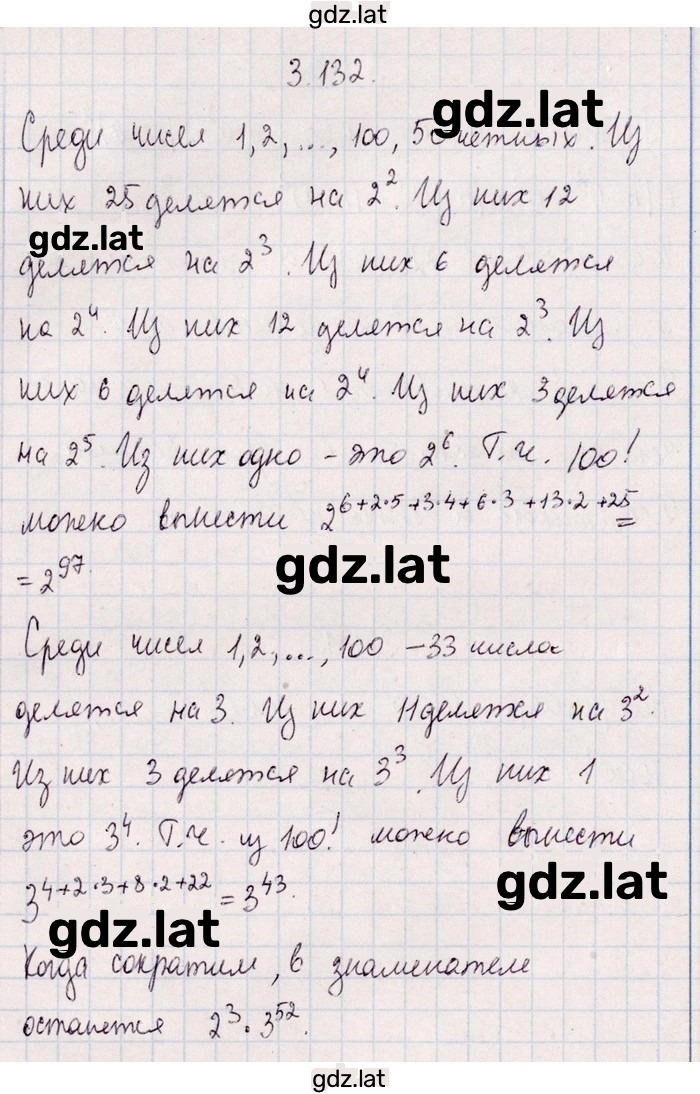 gdz.lat
3.132.
gdz.lat
Среди чисел 1, 2, ..., 100, 50 четных. Из
них 25 делятся на 2². Из них 12
gdz.lat
делятся на 2³. Из них 6 делятся
на 2⁴. Из них 12 делятся на 2³. Из
них 6 делятся на 2⁴. Из них 3 делятся
на 2⁵. Из них одно – это 2⁶. Т.ч. 100!
можно вынести 2^6+2·5+3·4+6·3+13·2+25 =
= 2⁹⁷.
gdz.lat
Среди чисел 1, 2, ..., 100 – 33 числа
делятся на 3. Из них 11 делятся на 3².
Из них 3 делятся на 3³. Из них 1
это 3⁴. Т.ч. из 100! можно вынести
3^4+2·3+8·2+22 = 3⁴³.
gdz.lat
gdz.lat
Когда сократим, в знаменателе
останется 2³·3⁵².
gdz.lat